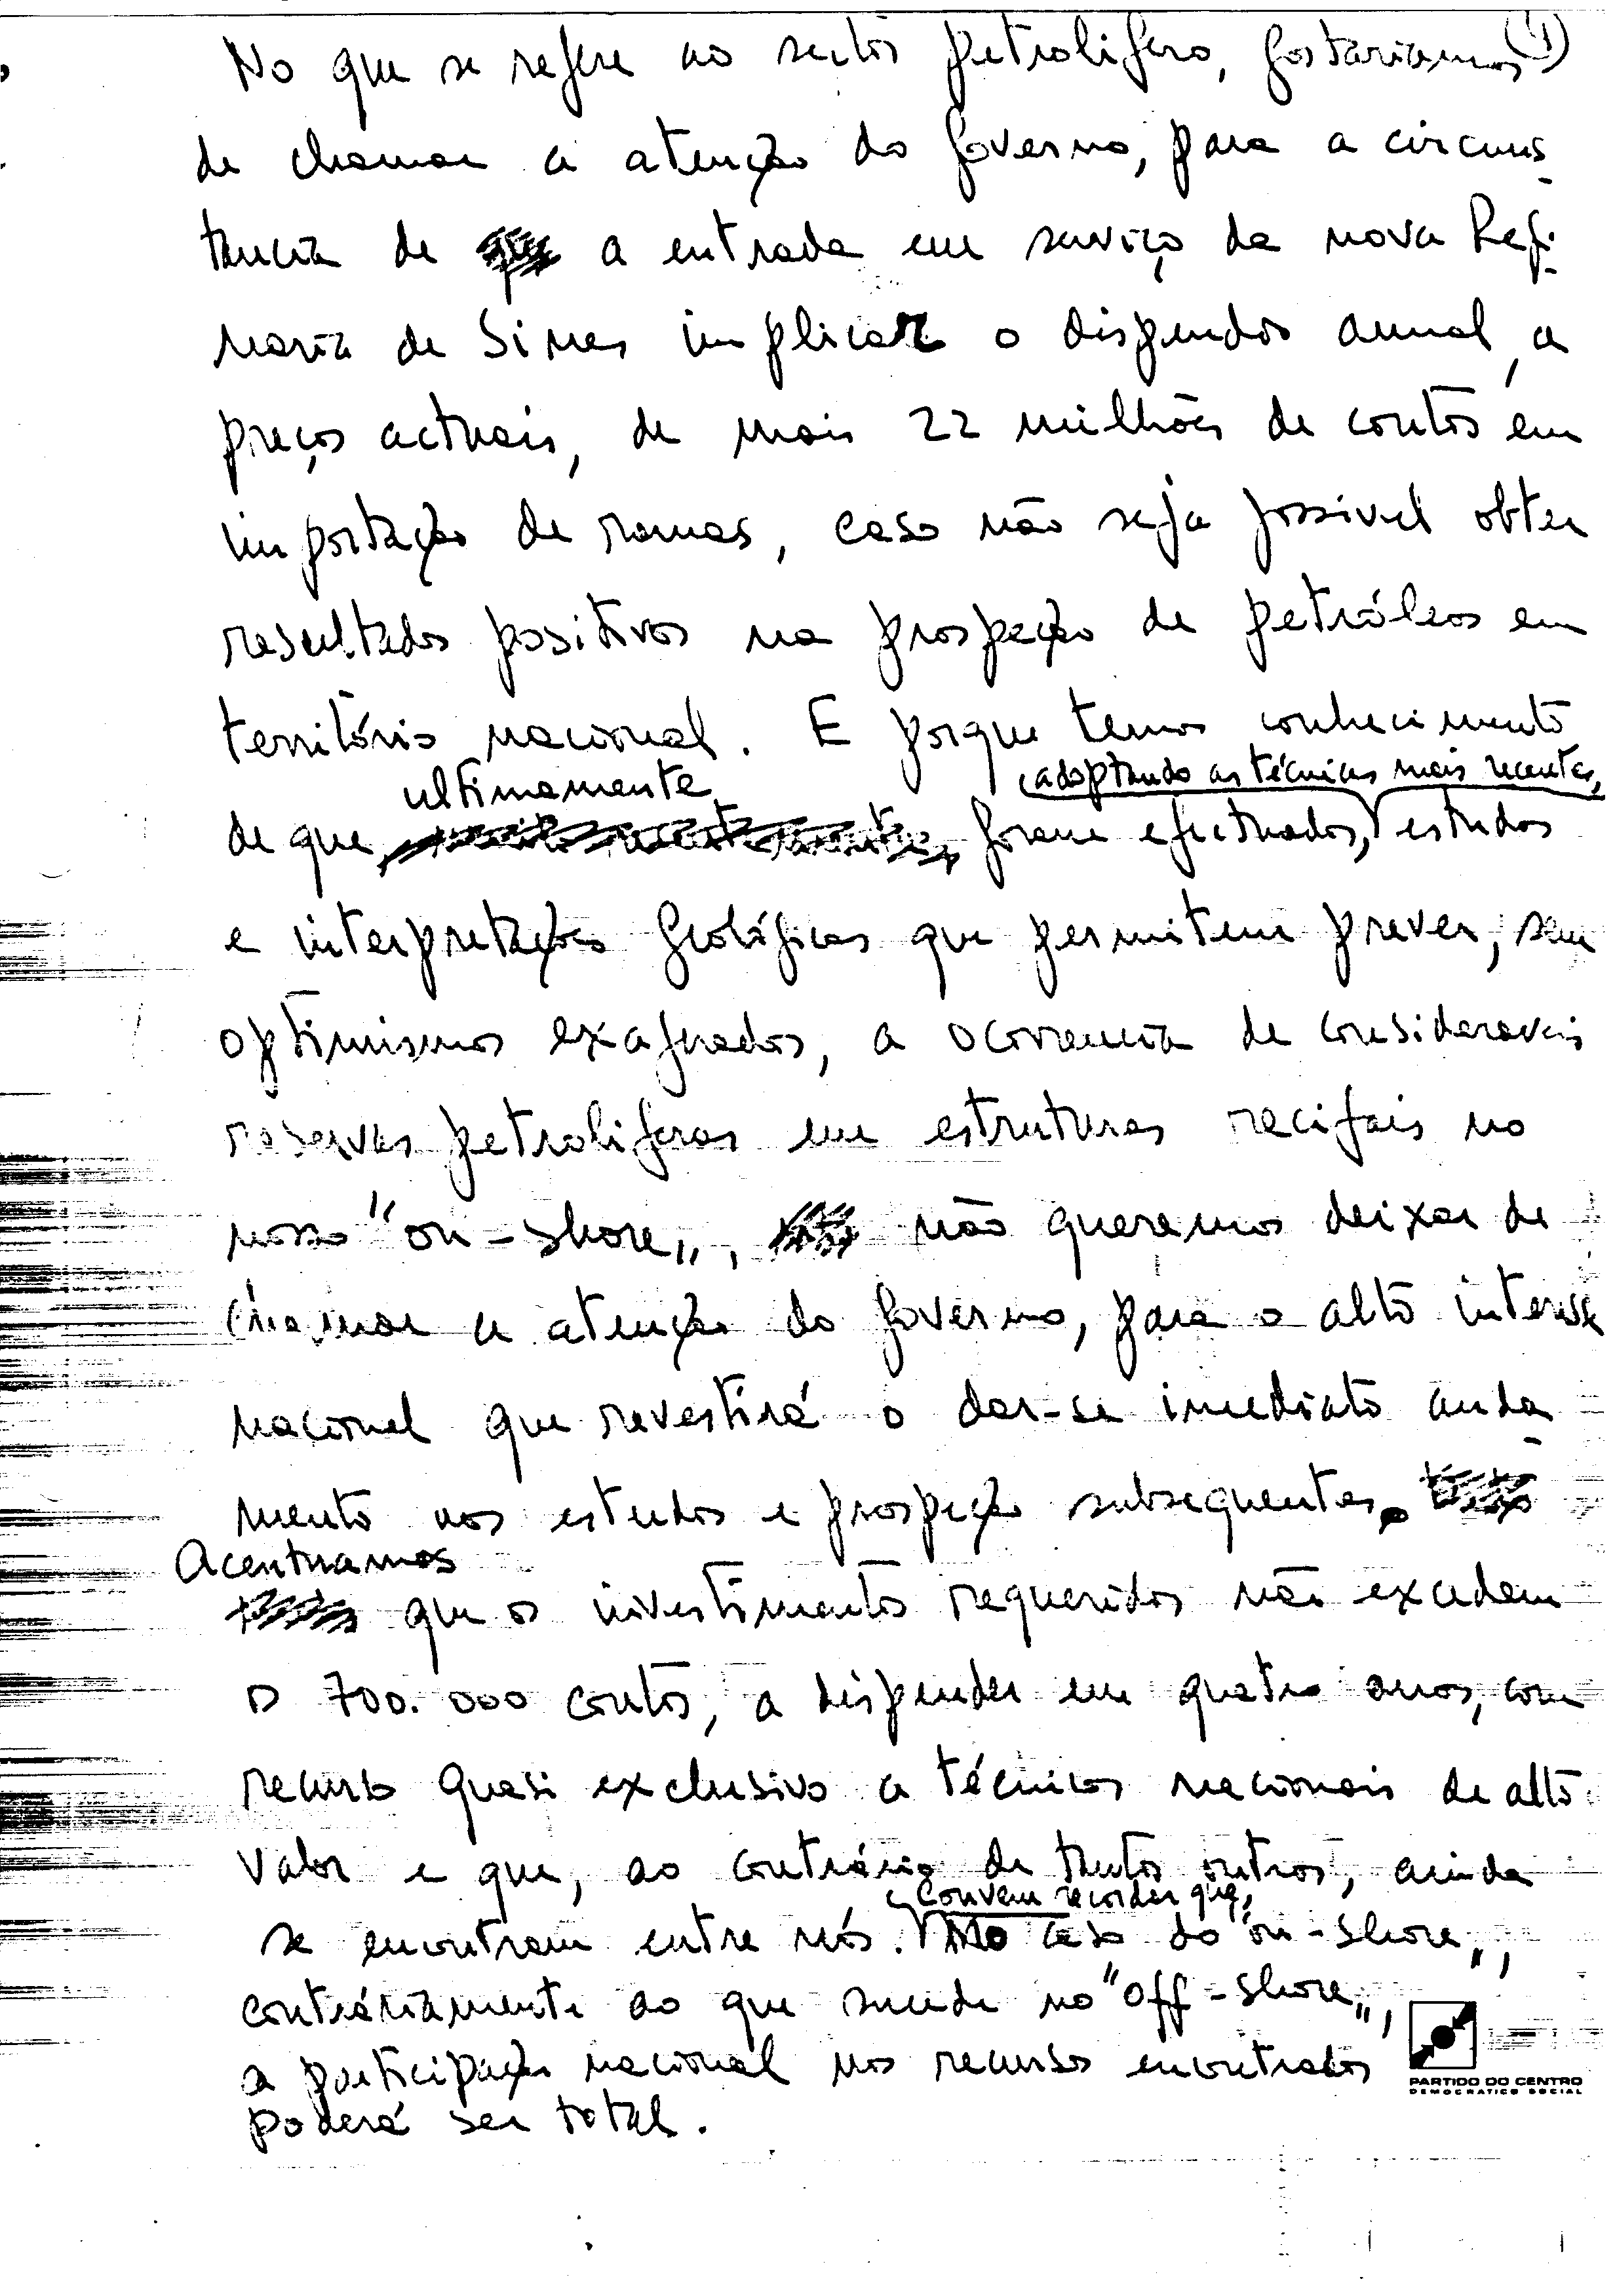 No que se refere ao sector petrolifero, gostariamos (1)
de chamar a atenção do Governo, para a circuns
tancia de a entrada em serviço da nova Refi-
naria de Sines implicar o dispendio anual, a
preços actuais, de mais 22 milhões de contos em
importação de ramas, caso não seja possivel obter
resultados positivos na prospeção de petróleos em
território nacional. E porque temos conhecimento
ultimamente (adoptando as técnicas mais recentes,
de que foram efectuados, estudos
e interpretações geológicas que permitem prever, sem
optimismos exagerados, a ocorrencia de consideraveis
reservas petroliferas em estruturas recifais no
nosso "on-shore", não queremos deixar de
chamar a atenção do Governo, para o alto interesse
nacional que revestirá o dar-se imediato anda-
mento aos estudos e prospeção subsequentes.
Acentuamos
que os investimentos requeridos não excedem
os 700.000 contos, a dispender em quatro anos, com
recurso quasi exclusivo a técnicos nacionais de alto
valor e que, ao contrário de tantos outros, ainda
Convem recordar que,
se encontram entre nós. no caso do "on-shore",
contráriamente ao que sucede no "off-shore",
a participação nacional nos recursos encontrados
poderá ser total.
PARTIDO DO CENTRO
DEMOCRATICO SOCIAL